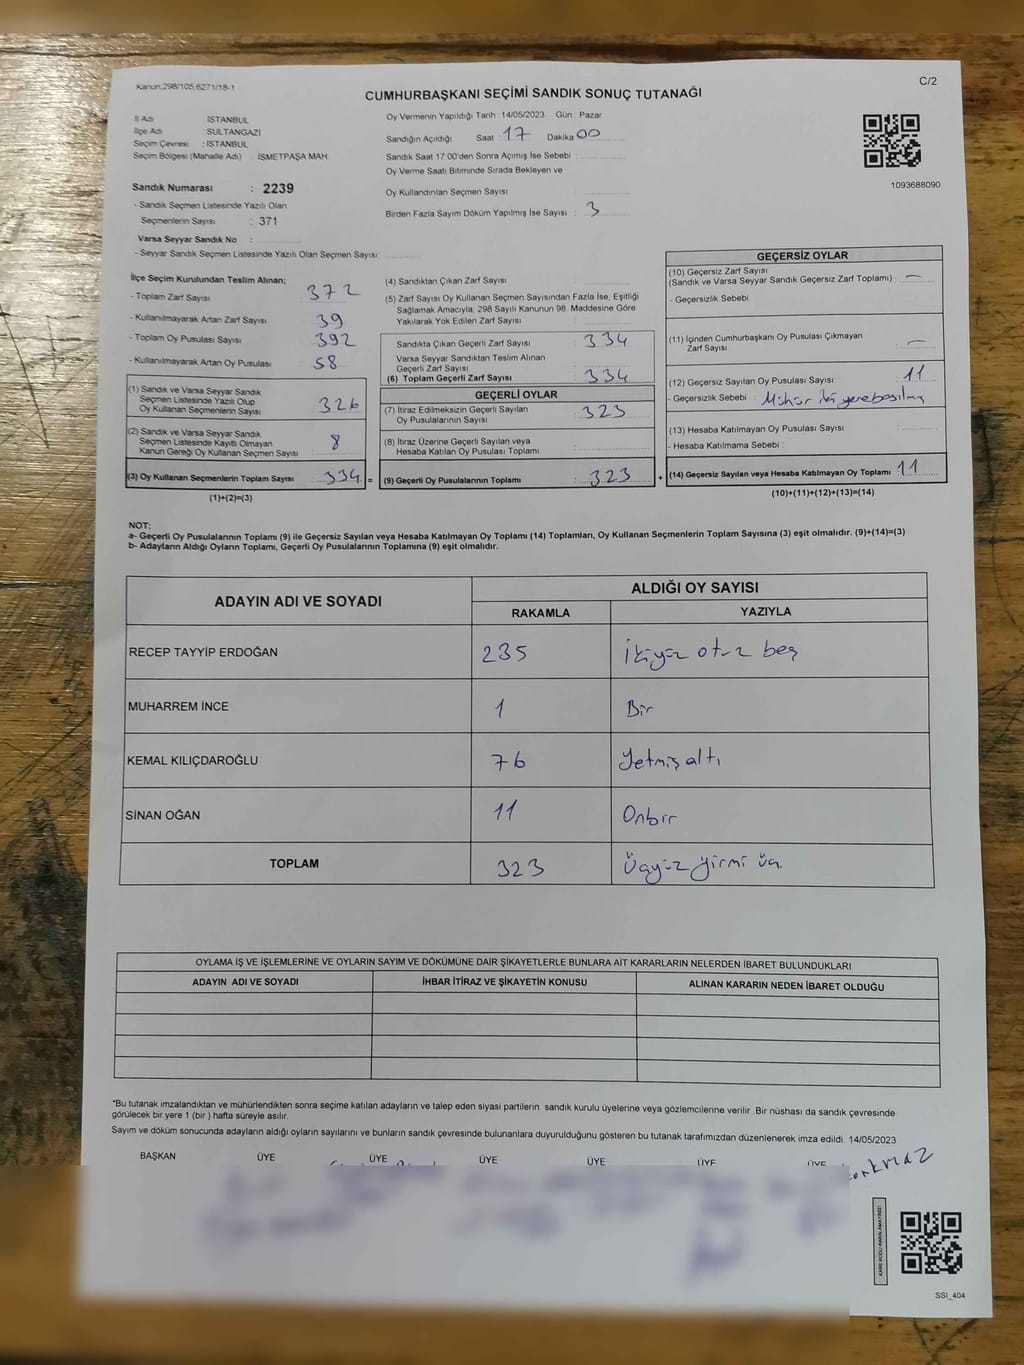 Kanun,298/105,6271/18-1
C/2
CUMHURBAŞKANI SEÇİMİ SANDIK SONUÇ TUTANAĞI
İl Adı : İSTANBUL
İlçe Adı : SULTANGAZİ
Seçim Çevresi : İSTANBUL
Seçim Bölgesi (Mahalle Adı) İSMETPAŞA MAH.
Sandık Numarası : 2239
- Sandık Seçmen Listesinde Yazılı Olan
Seçmenlerin Sayısı : 371
Varsa Seyyar Sandık No :
- Seyyar Sandık Seçmen Listesinde Yazılı Olan Seçmen Sayısı:
Oy Vermenin Yapıldığı Tarih : 14/05/2023 Gün : Pazar
Sandığın Açıldığı Saat : 17 Dakika 00
Sandık Saat 17:00'den Sonra Açımış İse Sebebi :
Oy Verme Saati Bitiminde Sırada Bekleyen ve
Oy Kullandırılan Seçmen Sayısı
Birden Fazla Sayım Döküm Yapılmış İse Sayısı : 3
1093688090
İlçe Seçim Kurulundan Teslim Alınan;
- Toplam Zarf Sayısı : 372
- Kullanılmayarak Artan Zarf Sayısı : 39
- Toplam Oy Pusulası Sayısı : 392
- Kullanılmayarak Artan Oy Pusulası : 58
(1) Sandık ve Varsa Seyyar Sandık
Seçmen Listesinde Yazılı Olup
Oy Kullanan Seçmenlerin Sayısı : 326
(2) Sandık ve Varsa Seyyar Sandık
Seçmen Listesinde Kayıtlı Olmayan
Kanun Gereği Oy Kullanan Seçmen Sayısı : 8
(3) Oy Kullanan Seçmenlerin Toplam Sayısı : 334 =
(1)+(2)=(3)
(4) Sandıktan Çıkan Zarf Sayısı :
(5) Zarf Sayısı Oy Kullanan Seçmen Sayısından Fazla İse, Eşitliği
Sağlamak Amacıyla, 298 Sayılı Kanunun 98. Maddesine Göre
Yakılarak Yok Edilen Zarf Sayısı :
Sandıkta Çıkan Geçerli Zarf Sayısı : 334
Varsa Seyyar Sandıktan Teslim Alınan
Geçerli Zarf Sayısı :
(6) Toplam Geçerli Zarf Sayısı : 334
GEÇERLİ OYLAR
(7) İtiraz Edilmeksizin Geçerli Sayılan
Oy Pusulalarının Sayısı : 323
(8) İtiraz Üzerine Geçerli Sayılan veya
Hesaba Katılan Oy Pusulası Toplamı :
(9) Geçerli Oy Pusulalarının Toplamı : 323 +
GEÇERSİZ OYLAR
(10) Geçersiz Zarf Sayısı
(Sandık ve Varsa Seyyar Sandık Geçersiz Zarf Toplamı) : —
- Geçersizlik Sebebi
(11) İçinden Cumhurbaşkanı Oy Pusulası Çıkmayan
Zarf Sayısı : —
(12) Geçersiz Sayılan Oy Pusulası Sayısı : 11
- Geçersizlik Sebebi : Mühür iki yere basılmış
(13) Hesaba Katılmayan Oy Pusulası Sayısı :
- Hesaba Katılmama Sebebi :
(14) Geçersiz Sayılan veya Hesaba Katılmayan Oy Toplamı : 11
(10)+(11)+(12)+(13)=(14)
NOT:
a- Geçerli Oy Pusulalarının Toplamı (9) ile Geçersiz Sayılan veya Hesaba Katılmayan Oy Toplamı (14) Toplamları, Oy Kullanan Seçmenlerin Toplam Sayısına (3) eşit olmalıdır. (9)+(14)=(3)
b- Adayların Aldığı Oyların Toplamı, Geçerli Oy Pusulalarının Toplamına (9) eşit olmalıdır.
ADAYIN ADI VE SOYADI
ALDIĞI OY SAYISI
RAKAMLA YAZIYLA
RECEP TAYYİP ERDOĞAN 235 İkiyüz otuz beş
MUHARREM İNCE 1 Bir
KEMAL KILIÇDAROĞLU 76 Yetmiş altı
SİNAN OĞAN 11 Onbir
TOPLAM 323 Üçyüz yirmi üç
OYLAMA İŞ VE İŞLEMLERİNE VE OYLARIN SAYIM VE DÖKÜMÜNE DAİR ŞİKAYETLERLE BUNLARA AİT KARARLARIN NELERDEN İBARET BULUNDUKLARI
ADAYIN ADI VE SOYADI İHBAR İTİRAZ VE ŞİKAYETİN KONUSU ALINAN KARARIN NEDEN İBARET OLDUĞU
*Bu tutanak imzalandıktan ve mühürlendikten sonra seçime katılan adayların ve talep eden siyasi partilerin sandık kurulu üyelerine veya gözlemcilerine verilir. Bir nüshası da sandık çevresinde
görülecek bir yere 1 (bir ) hafta süreyle asılır.
Sayım ve döküm sonucunda adayların aldığı oyların sayılarını ve bunların sandık çevresinde bulunanlara duyurulduğunu gösteren bu tutanak tarafımızdan düzenlenerek imza edildi. 14/05/2023
BAŞKAN ÜYE ÜYE ÜYE ÜYE ÜYE ÜYE
SSI_404